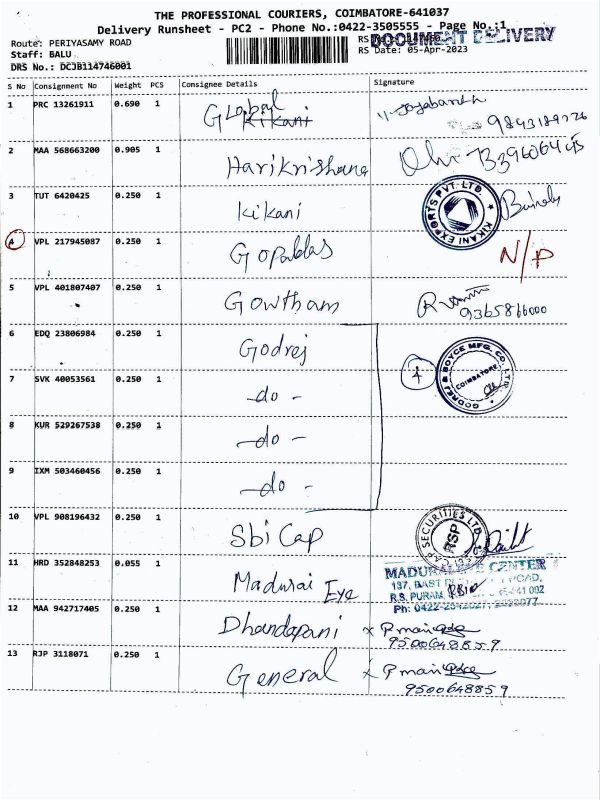 THE PROFESSIONAL COURIERS, COIMBATORE-641037
Delivery Runsheet - PC2 - Phone No.:0422-3505555 - Page No.:1
Route: PERIYASAMY ROAD
DOCUMENT DELIVERY
Staff: BALU
RS Date: 05-Apr-2023
DRS No.: DCJB114746001
S No Consignment No Weight PCS Consignee Details Signature
1 PRC 13261911 0.690 1 Global Kikani Jayabharath
9843189726
2 MAA 568663200 0.905 1 Harikrishana
3 TUT 6420425 0.250 1 Kikani KIKANI EXPORTS PVT. LTD.
4 VPL 217945087 0.250 1 Gopaldas N/P
5 VPL 401807407 0.250 1 Gowtham
9365866000
6 EDQ 23806984 0.250 1 Godrej
7 SVK 40053561 0.250 1 -do- 4 GODREJ & BOYCE MFG. CO. LTD. COIMBATORE
8 KUR 529267538 0.250 1 -do-
9 IXM 503460456 0.250 1 -do-
10 VPL 908196432 0.250 1 Sbi Cap CAP SECURITIES LTD RSP
11 HRD 352848253 0.055 1 Madurai Eye MADURAI EYE CENTER
R.S. PURAM
Ph: 0422-
12 MAA 942717405 0.250 1 Dhandapani x P mani
9500648859
13 RJP 3118071 0.250 1 General x P mani
9500648859